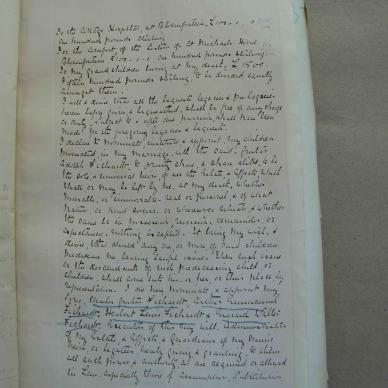 To the Cottage Hospital, at Bloemfontein £100 . . .
One hundred pounds sterling
For the comfort of the Sisters of St Michaels Home
Bloemfontein £100 . . . One hundred pounds sterling.
To my Grand children living at my death, £1500
Fifteen hundred pounds sterling, to be divided equally
amongst them.
I will & desire that all the bequests legacies & pre legacies
herein before given & bequeathed shall be free of any charge
or duty, & subject to & after due provision shall have been
made for the foregoing legacies & bequests.
I declare to nominate, institute & appoint my children
procreated in my marriage with the said Gustav
Adolph Fichardt to share alike, to be
the sole & universal heirs of all the Estate & Effects which
shall or may be left by me, at my death, whether
movable, or immovable real or personal & of what
nature or kind soever, or wheresoever situate & whether
the same be in possession, reversion, remainder, or
expectancy, nothing excepted. It being my will, &
desire, that should any one or more of said children
predecease me leaving lawful issue. Then such issue
or the descendants of such predeceasing child or
children, shall come into his, or her, or their place by
representation. I do hereby nominate & appoint my
Sons, Charles Gustav Fichardt, Arthur Emmanuel
Fichardt, Herbert Lewis Fichardt & Everard Willis
Fichardt, Executors of this my will, Administrators
of my Estate, & Effects & Guardians of my Minor
heirs, or legatees, hereby giving & granting to them
all such power & authority as are required or allowed
in Law. Especially those of Assumption, Substitution